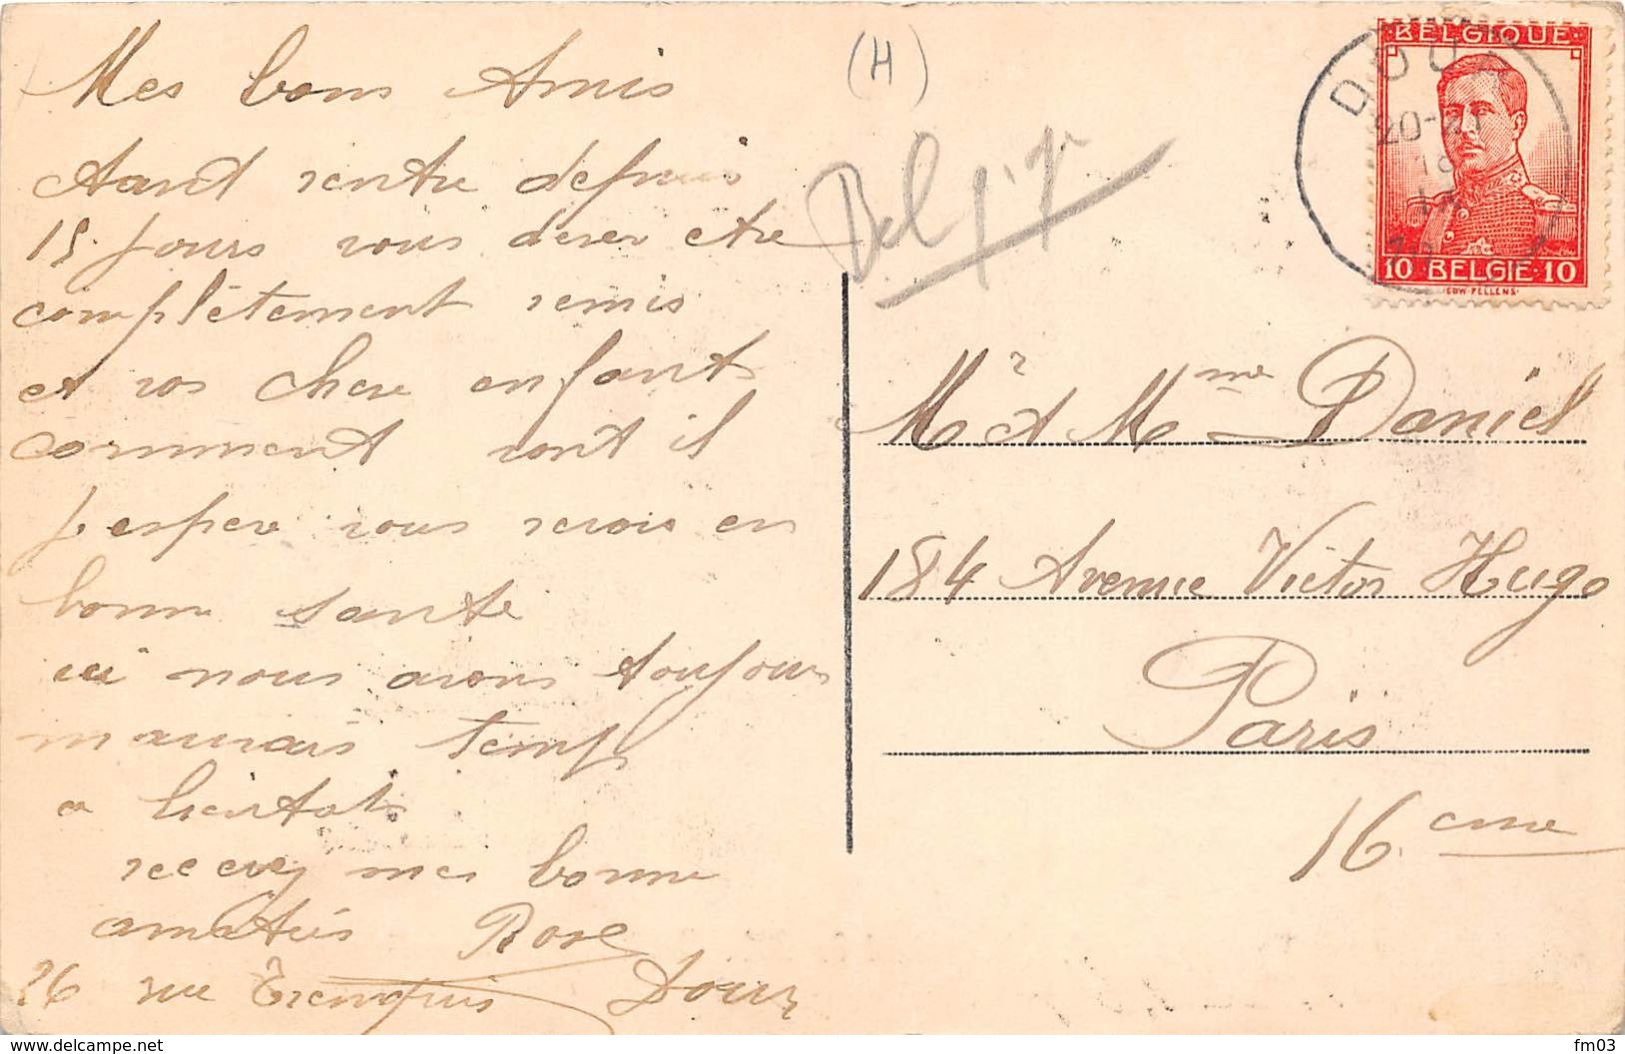 Mes bons Amis
étant rentre depuis
15 jours vous devez etre
complètement remis
et vos chere enfants
comment vont il
j. espere vous revoir en
bonne sante
ici nous avons toujour
mauvais temps
a bientot
recevez mes bonne
amitiés Rose
26 rue Dour
(H)
Belgique
DOUR
20-21
BELGIQUE
10 BELGIE 10
EDW. PELLENS
Mr et Mme Daniel
184 Avenue Victor Hugo
Paris
16 eme
www.delcampe.net
fm03